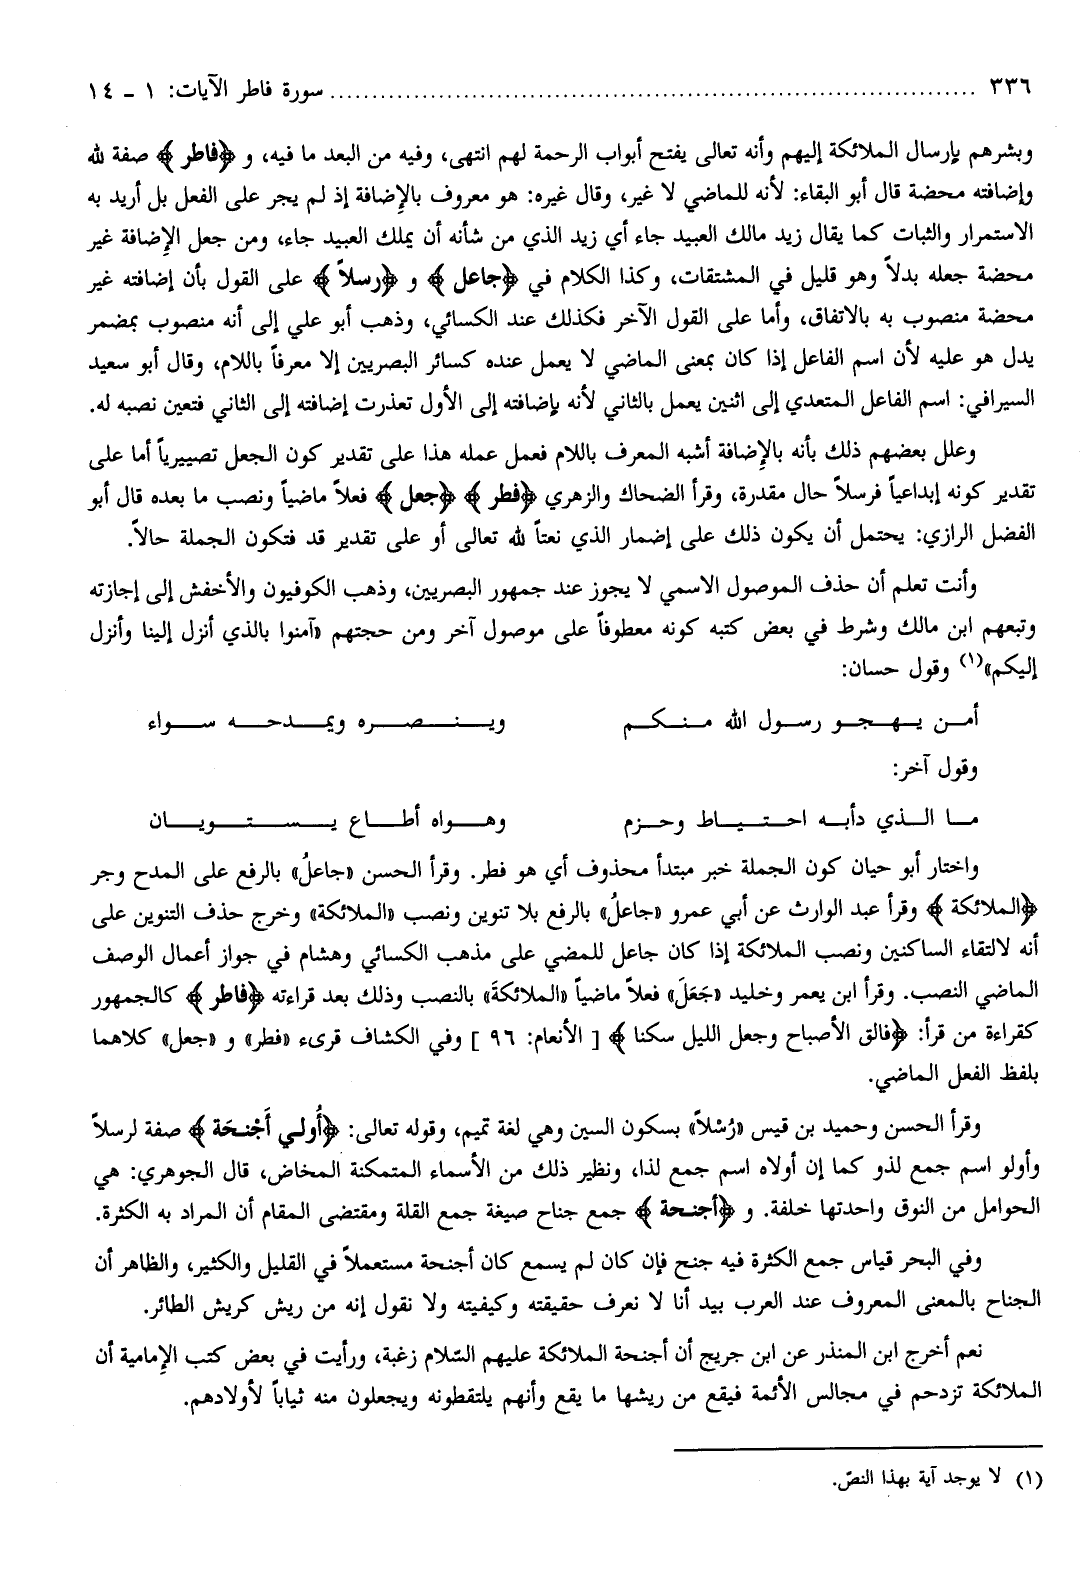 ٣٣٦ ................................................................ سورة فاطر الآيات: ١ - ١٤
وبشرهم بإرسال الملائكة إليهم وأنه تعالى يفتح أبواب الرحمة لهم انتهى، وفيه من البعد ما فيه، و ﴿فاطر﴾ صفة لله
وإضافته محضة قال أبو البقاء: لأنه للماضي لا غير، وقال غيره: هو معروف بالإِضافة إذ لم يجر على الفعل بل أريد به
الاستمرار والثبات كما يقال زيد مالك العبيد جاء أي زيد الذي من شأنه أن يملك العبيد جاء، ومن جعل الإِضافة غير
محضة جعله بدلاً وهو قليل في المشتقات، وكذا الكلام في ﴿جاعل﴾ و ﴿رسلاً﴾ على القول بأن إضافته غير
محضة منصوب به بالاتفاق، وأما على القول الآخر فكذلك عند الكسائي، وذهب أبو علي إلى أنه منصوب بمضمر
يدل هو عليه لأن اسم الفاعل إذا كان بمعنى الماضي لا يعمل عنده كسائر البصريين إلا معرفاً باللام، وقال أبو سعيد
السيرافي: اسم الفاعل المتعدي إلى اثنين يعمل بالثاني لأنه بإضافته إلى الأول تعذرت إضافته إلى الثاني فتعين نصبه له.
وعلل بعضهم ذلك بأنه بالإِضافة أشبه المعرف باللام فعمل عمله هذا على تقدير كون الجعل تصييرياً أما على
تقدير كونه إبداعياً فرسلاً حال مقدرة، وقرأ الضحاك والزهري ﴿فطر﴾ ﴿جعل﴾ فعلاً ماضياً ونصب ما بعده قال أبو
الفضل الرازي: يحتمل أن يكون ذلك على إضمار الذي نعتاً لله تعالى أو على تقدير قد فتكون الجملة حالاً.
وأنت تعلم أن حذف الموصول الاسمي لا يجوز عند جمهور البصريين، وذهب الكوفيون والأخفش إلى إجازته
وتبعهم ابن مالك وشرط في بعض كتبه كونه معطوفاً على موصول آخر ومن حجتهم «آمنوا بالذي أنزل إلينا وأنزل
إليكم»(١) وقول حسان:
أمن يهجو رسول الله منكم وينصره ويمدحه سواء
وقول آخر:
ما الذي دأبه احتياط وحزم وهواه أطاع يستويان
واختار أبو حيان كون الجملة خبر مبتدأ محذوف أي هو فطر. وقرأ الحسن «جاعلُ» بالرفع على المدح وجر
﴿الملائكة﴾ وقرأ عبد الوارث عن أبي عمرو «جاعلُ» بالرفع بلا تنوين ونصب «الملائكة» وخرج حذف التنوين على
أنه لالتقاء الساكنين ونصب الملائكة إذا كان جاعل للمضي على مذهب الكسائي وهشام في جواز أعمال الوصف
الماضي النصب. وقرأ ابن يعمر وخليد «جَعَلَ» فعلاً ماضياً «الملائكةَ» بالنصب وذلك بعد قراءته ﴿فاطر﴾ كالجمهور
كقراءة من قرأ: ﴿فالق الأصباح وجعل الليل سكنا﴾ [ الأنعام: ٩٦ ] وفي الكشاف قرىء «فطر» و «جعل» كلاهما
بلفظ الفعل الماضي.
وقرأ الحسن وحميد بن قيس «رُسْلاً» بسكون السين وهي لغة تميم، وقوله تعالى: ﴿أُولي أَجْنحَة﴾ صفة لرسلاً
وأولو اسم جمع لذو كما إن أولاه اسم جمع لذا، ونظير ذلك من الأسماء المتمكنة المخاض، قال الجوهري: هي
الحوامل من النوق واحدتها خلفة. و ﴿أجنحة﴾ جمع جناح صيغة جمع القلة ومقتضى المقام أن المراد به الكثرة.
وفي البحر قياس جمع الكثرة فيه جنح فإن كان لم يسمع كان أجنحة مستعملاً في القليل والكثير، والظاهر أن
الجناح بالمعنى المعروف عند العرب بيد أنا لا نعرف حقيقته وكيفيته ولا نقول إنه من ريش كريش الطائر.
نعم أخرج ابن المنذر عن ابن جريج أن أجنحة الملائكة عليهم السّلام زغبة، ورأيت في بعض كتب الإِمامية أن
الملائكة تزدحم في مجالس الأئمة فيقع من ريشها ما يقع وأنهم يلتقطونه ويجعلون منه ثياباً لأولادهم.
(١) لا يوجد آية بهذا النصّ.